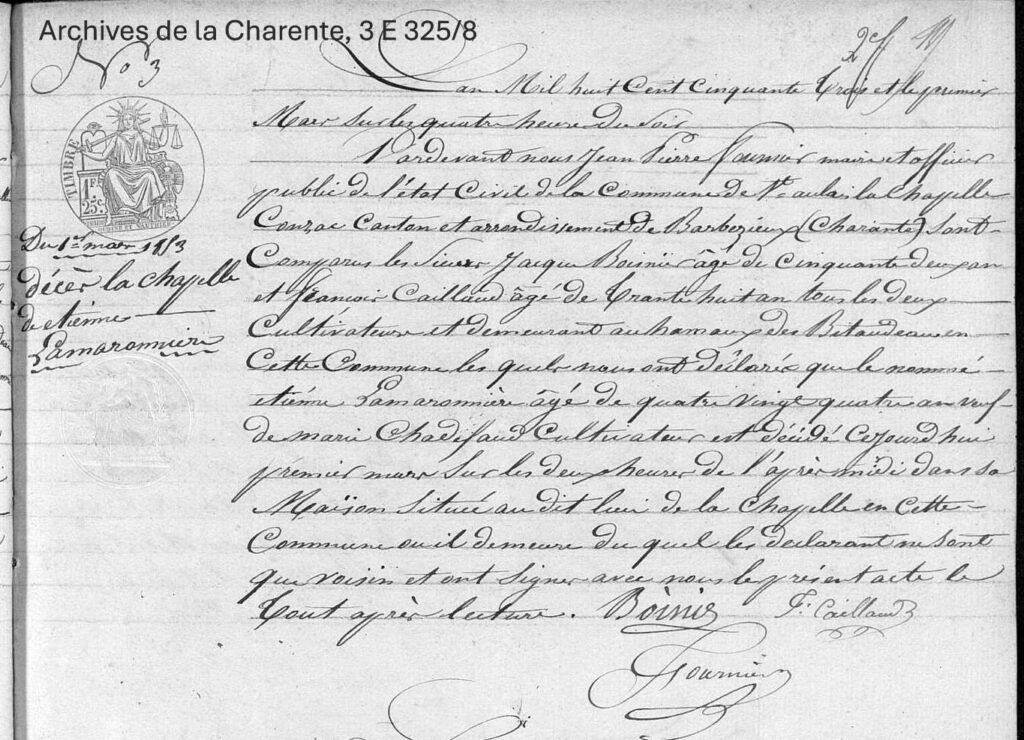 Archives de la Charente, 3 E 325/8
No 3
L'an Mil huit Cent Cinquante trois et le premier
Mars sur les quatre heure du soir
Pardevant nous Jean Pierre Fournier maire et officier
public de l'état Civil de la Commune de St aulais la Chapelle
Conzac Canton et arrondissement de Barbezieux (Charante) sont
Comparus les sieurs Jacque Boinier âgé de cinquante deux an
et françois Caillaud âgé de trante huit an tous les deux
Cultivateurs et demeurant au hamaux des Bitaudeau en
Cette Commune les quels nous ont déclaré que le nommé
etiénne Lamaronnière âgé de quatre vingt quatre an veuf
de marie Chadefaud Cultivateur est décédé Cejourd'hui
premier mars sur les deux heures de l'après midi dans sa
Maison située au dit lieu de la Chapelle en Cette
Commune ou il demeure du quel les déclarant ne sont
que voisin et ont signer avec nous le présent acte le
tout après lecture. Boinie F. Caillaud
Fournier
TIMBRE
1 F.
25 c.
Du 1er mars 1853
décès la chapelle
de etiénne
Lamaronnière